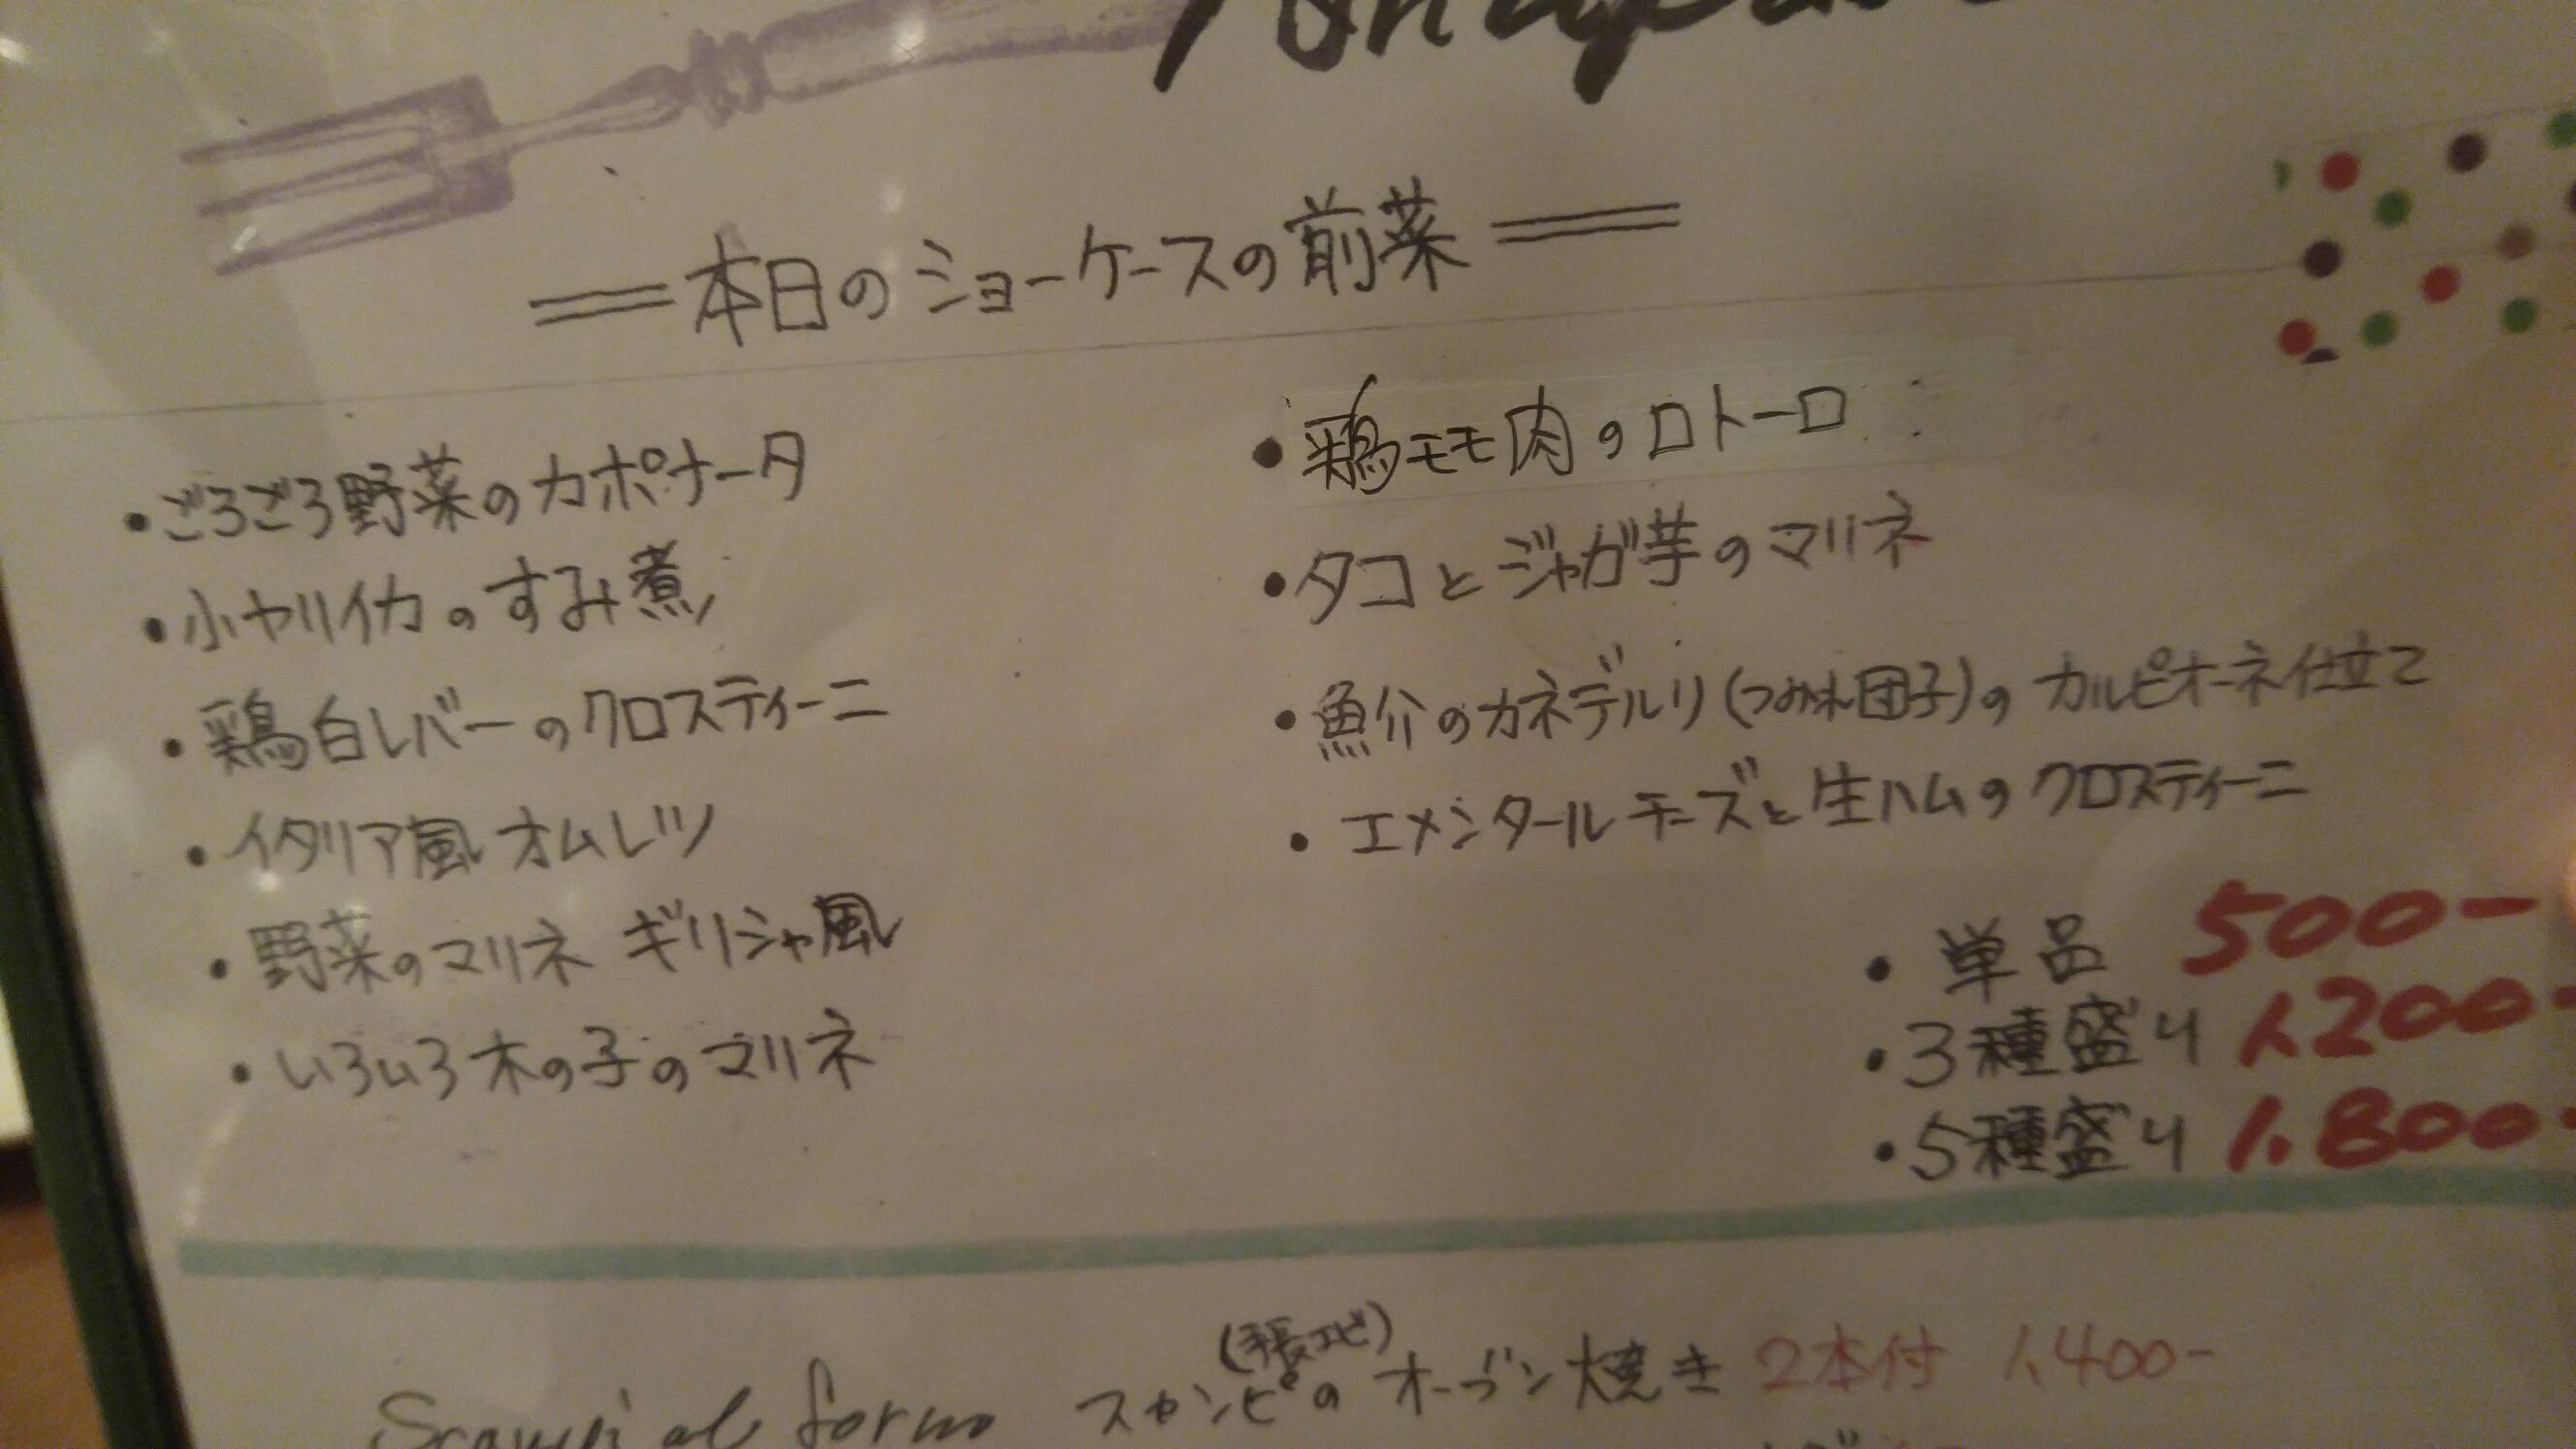 本日のショーケースの前菜
・ごろごろ野菜のカポナータ
・小ヤリイカのすみ煮
・鶏白レバーのクロスティーニ
・イタリア風オムレツ
・野菜のマリネ ギリシャ風
・いろいろ木の子のマリネ
・鶏モモ肉のロトーロ
・タコとジャガ芋のマリネ
・魚介のカネデルリ(つみれ団子)のカルピオーネ仕立て
・エメンタールチーズと生ハムのクロスティーニ
・単品 500-
・3種盛り 1,200-
・5種盛り 1,800-
(手長エビ)
Scampi al forno スカンピのオーブン焼き 2本付 1,400-